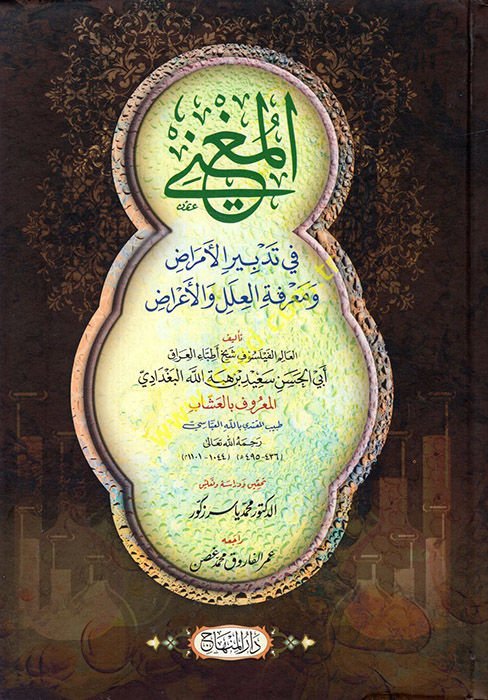 المُغْنِي
في تَدْبِيرِ الأَمْرَاضِ
وَمَعْرِفَةِ العِلَلِ وَالأَعْرَاضِ
تأليف
العالم الفيلسوف شيخ أطباء العراق
أبي الحسن سعيد بن هبة الله البغدادي
المعروف بالعشاب
طبيب المقتدي بالله العباسي
رحمه الله تعالى
(٤٣٦-٤٩٥هـ) (١٠٤٤-١١٠١م)
تحقيق ودراسة وتعليق
الدكتور محمد ياسر زكور
راجعه
عمر الفاروق محمد غصن
دار المنهاج